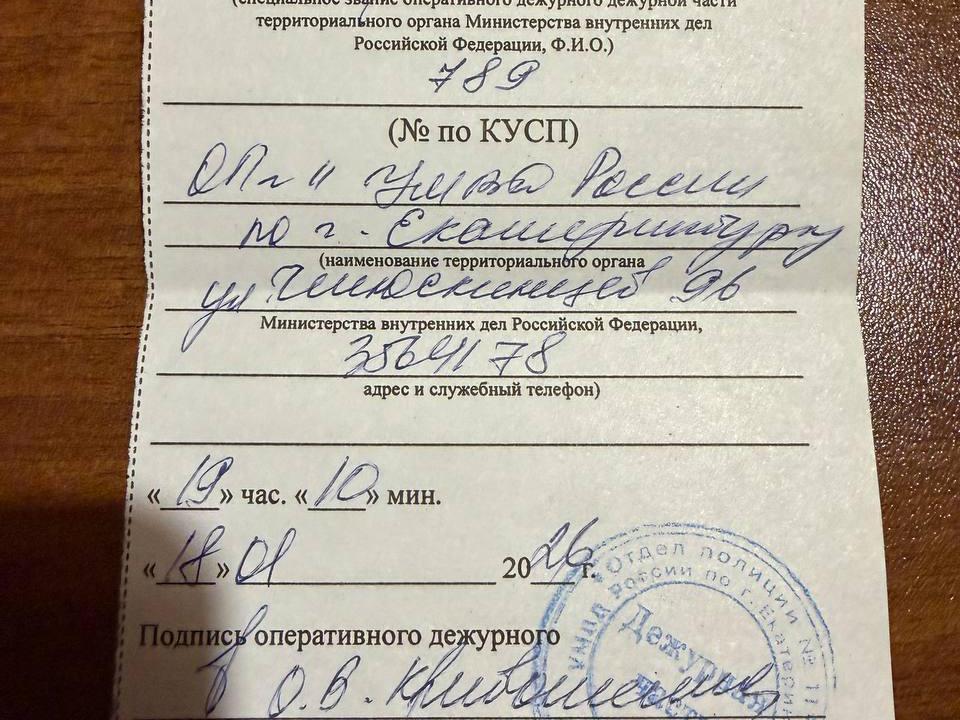 (специальное звание оперативного дежурного дежурной части
территориального органа Министерства внутренних дел
Российской Федерации, Ф.И.О.)
789
(№ по КУСП)
ОП № 11 УМВД России
по г. Екатеринбургу
(наименование территориального органа
ул Челюскинцев 96
Министерства внутренних дел Российской Федерации,
3564178
адрес и служебный телефон)
«19» час. «10» мин.
«18» 01 2026 г.
Подпись оперативного дежурного
О.В.
Отдел полиции № 11
УМВД России по г. Екатерин
Дежурная
часть